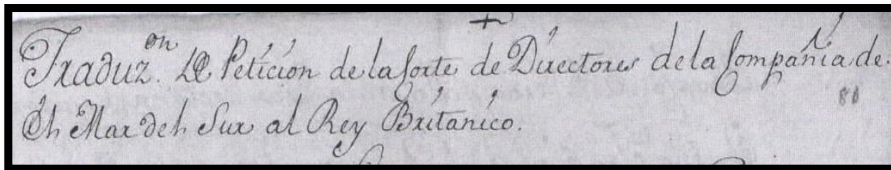 Traduz.on de Peticion de la Corte de Directores de la Compañia de
el Mar del Sur al Rey Britanico.
80